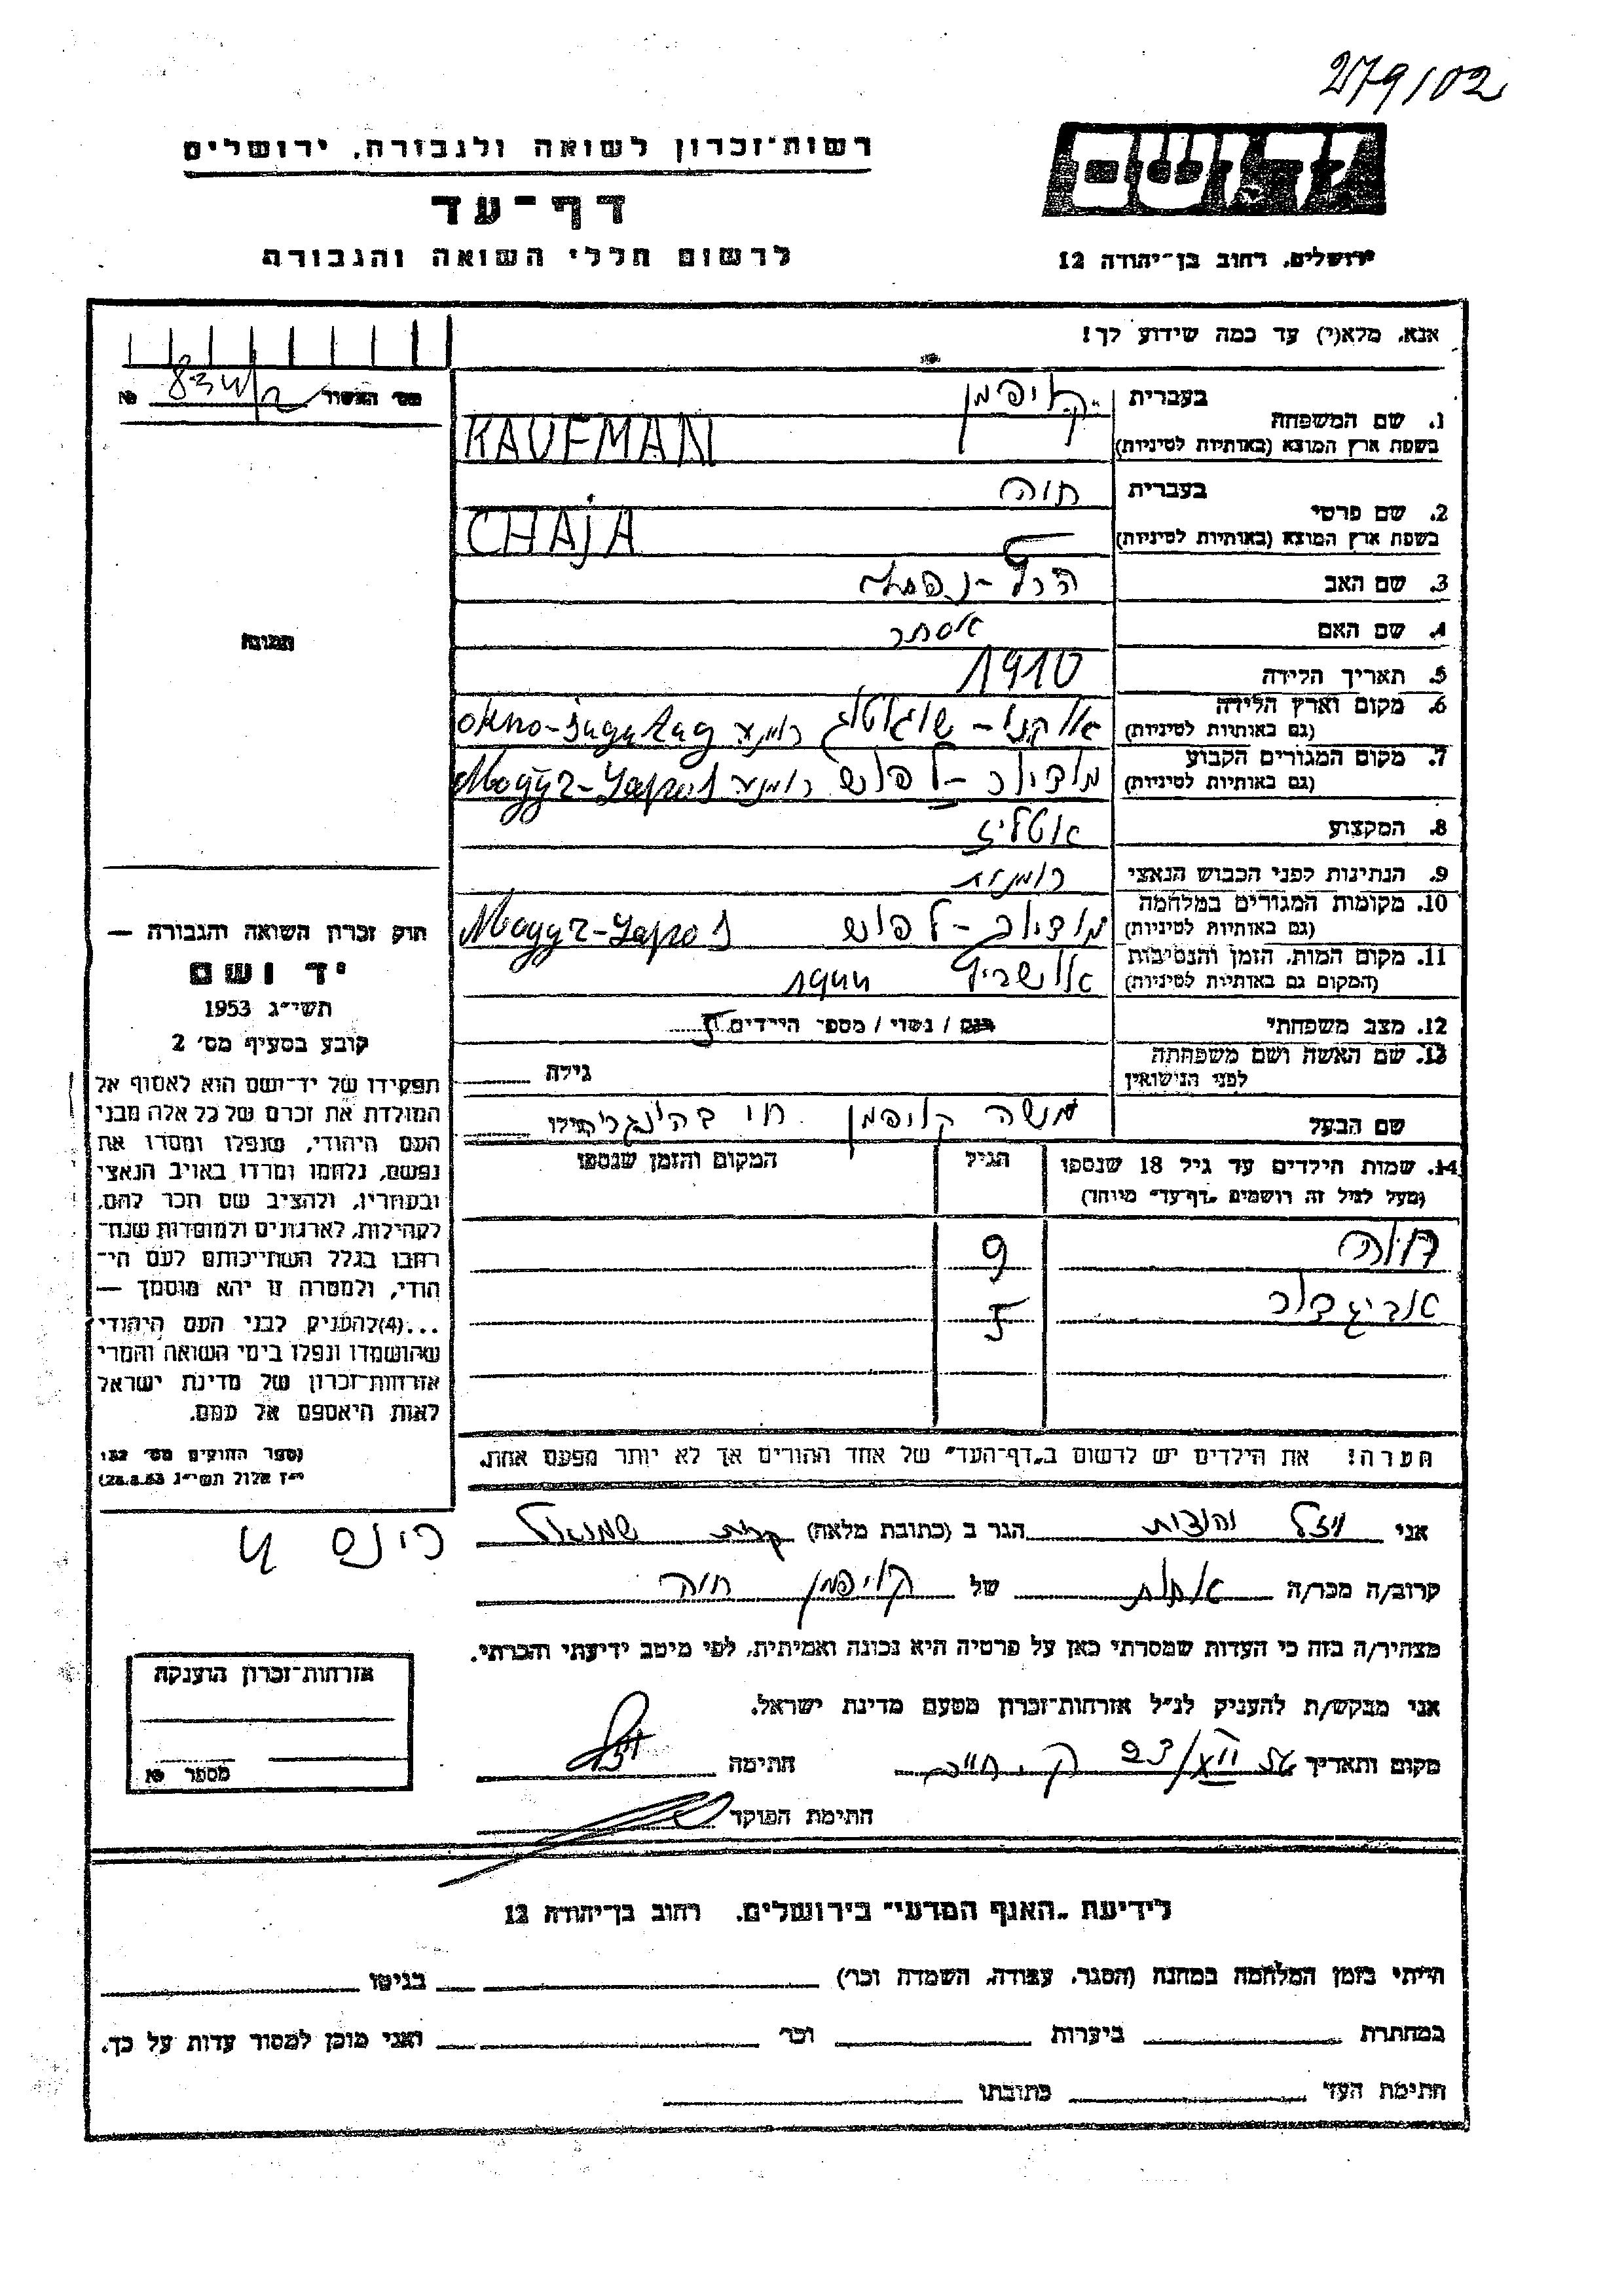 279/02
רשות־זכרון לשואה ולגבורה, ירושלים
דף־עד
לרשום חללי השואה והגבורה
יד ושם
ירושלים, רחוב בן־יהודה 12
אנא, מלא(י) עד כמה שידוע לך!
מס׳ האשור № 834/2
1. שם המשפחה
בעברית קויפמן
בשפת ארץ המוצא (באותיות לטיניות) KAUFMAN
2. שם פרטי
בעברית חוה
בשפת ארץ המוצא (באותיות לטיניות) CHAJA
3. שם האב
4. שם האם אסתר
5. תאריך הלידה 1910
6. מקום וארץ הלידה
(גם באותיות לטיניות)
7. מקום המגורים הקבוע
(גם באותיות לטיניות) רומניה
8. המקצוע
9. הנתינות לפני הכבוש הנאצי רומנית
10. מקומות המגורים במלחמה
(גם באותיות לטיניות)
11. מקום המות, הזמן והנסיבות
(המקום גם באותיות לטיניות) אושביץ 1944
12. מצב משפחתי רוק / נשוי / מספר הילדים
13. שם האשה ושם משפחתה
לפני הנישואין גילה
שם הבעל מנשה קויפמן גילו
14. שמות הילדים עד גיל 18 שנספו
(מעל לגיל זה רושמים „דף־עד״ מיוחד)
הגיל
המקום והזמן שנספו
9
אביגדור 5
הערה! את הילדים יש לרשום ב„דף־העד״ של אחד ההורים אך לא יותר מפעם אחת.
תמונה
חוק זכרון השואה והגבורה —
יד ושם
תשי״ג 1953
קובע בסעיף מס׳ 2
תפקידו של יד־ושם הוא לאסוף אל
המולדת את זכרם של כל אלה מבני
העם היהודי, שנפלו ומסרו את
נפשם, נלחמו ומרדו באויב הנאצי
ובעוזריו, ולהציב שם וזכר להם,
לקהילות, לארגונים ולמוסדות שנח־
רבו בגלל השתייכותם לעם הי־
הודי, ולמטרה זו יהא מוסמך —
...(4)להעניק לבני העם היהודי
שהושמדו ונפלו בימי השואה והמרי
אזרחות־זכרון של מדינת ישראל
לאות היאספם אל עמם.
(ספר החוקים מס׳ 132
י״ז אלול תשי״ג 28.8.53)
אני ויזל הגר ב (כתובת מלאה) קרית שמואל
קרוב/ה מכר/ה אחות של קויפמן חוה
מצהיר/ה בזה כי העדות שמסרתי כאן על פרטיה היא נכונה ואמיתית, לפי מיטב ידיעתי והכרתי.
אני מבקש/ת להעניק לנ״ל אזרחות־זכרון מטעם מדינת ישראל.
מקום ותאריך חתימה
חתימת הפוקד
אזרחות־זכרון הוענקה
מספר №
לידיעת „האגף המדעי״ בירושלים, רחוב בן־יהודה 12
הייתי בזמן המלחמה במחנה (הסגר, עבודה, השמדה וכו׳) בגיטו
במחתרת ביערות וכו׳ ואני מוכן למסור עדות על כך.
חתימת העד כתובתו